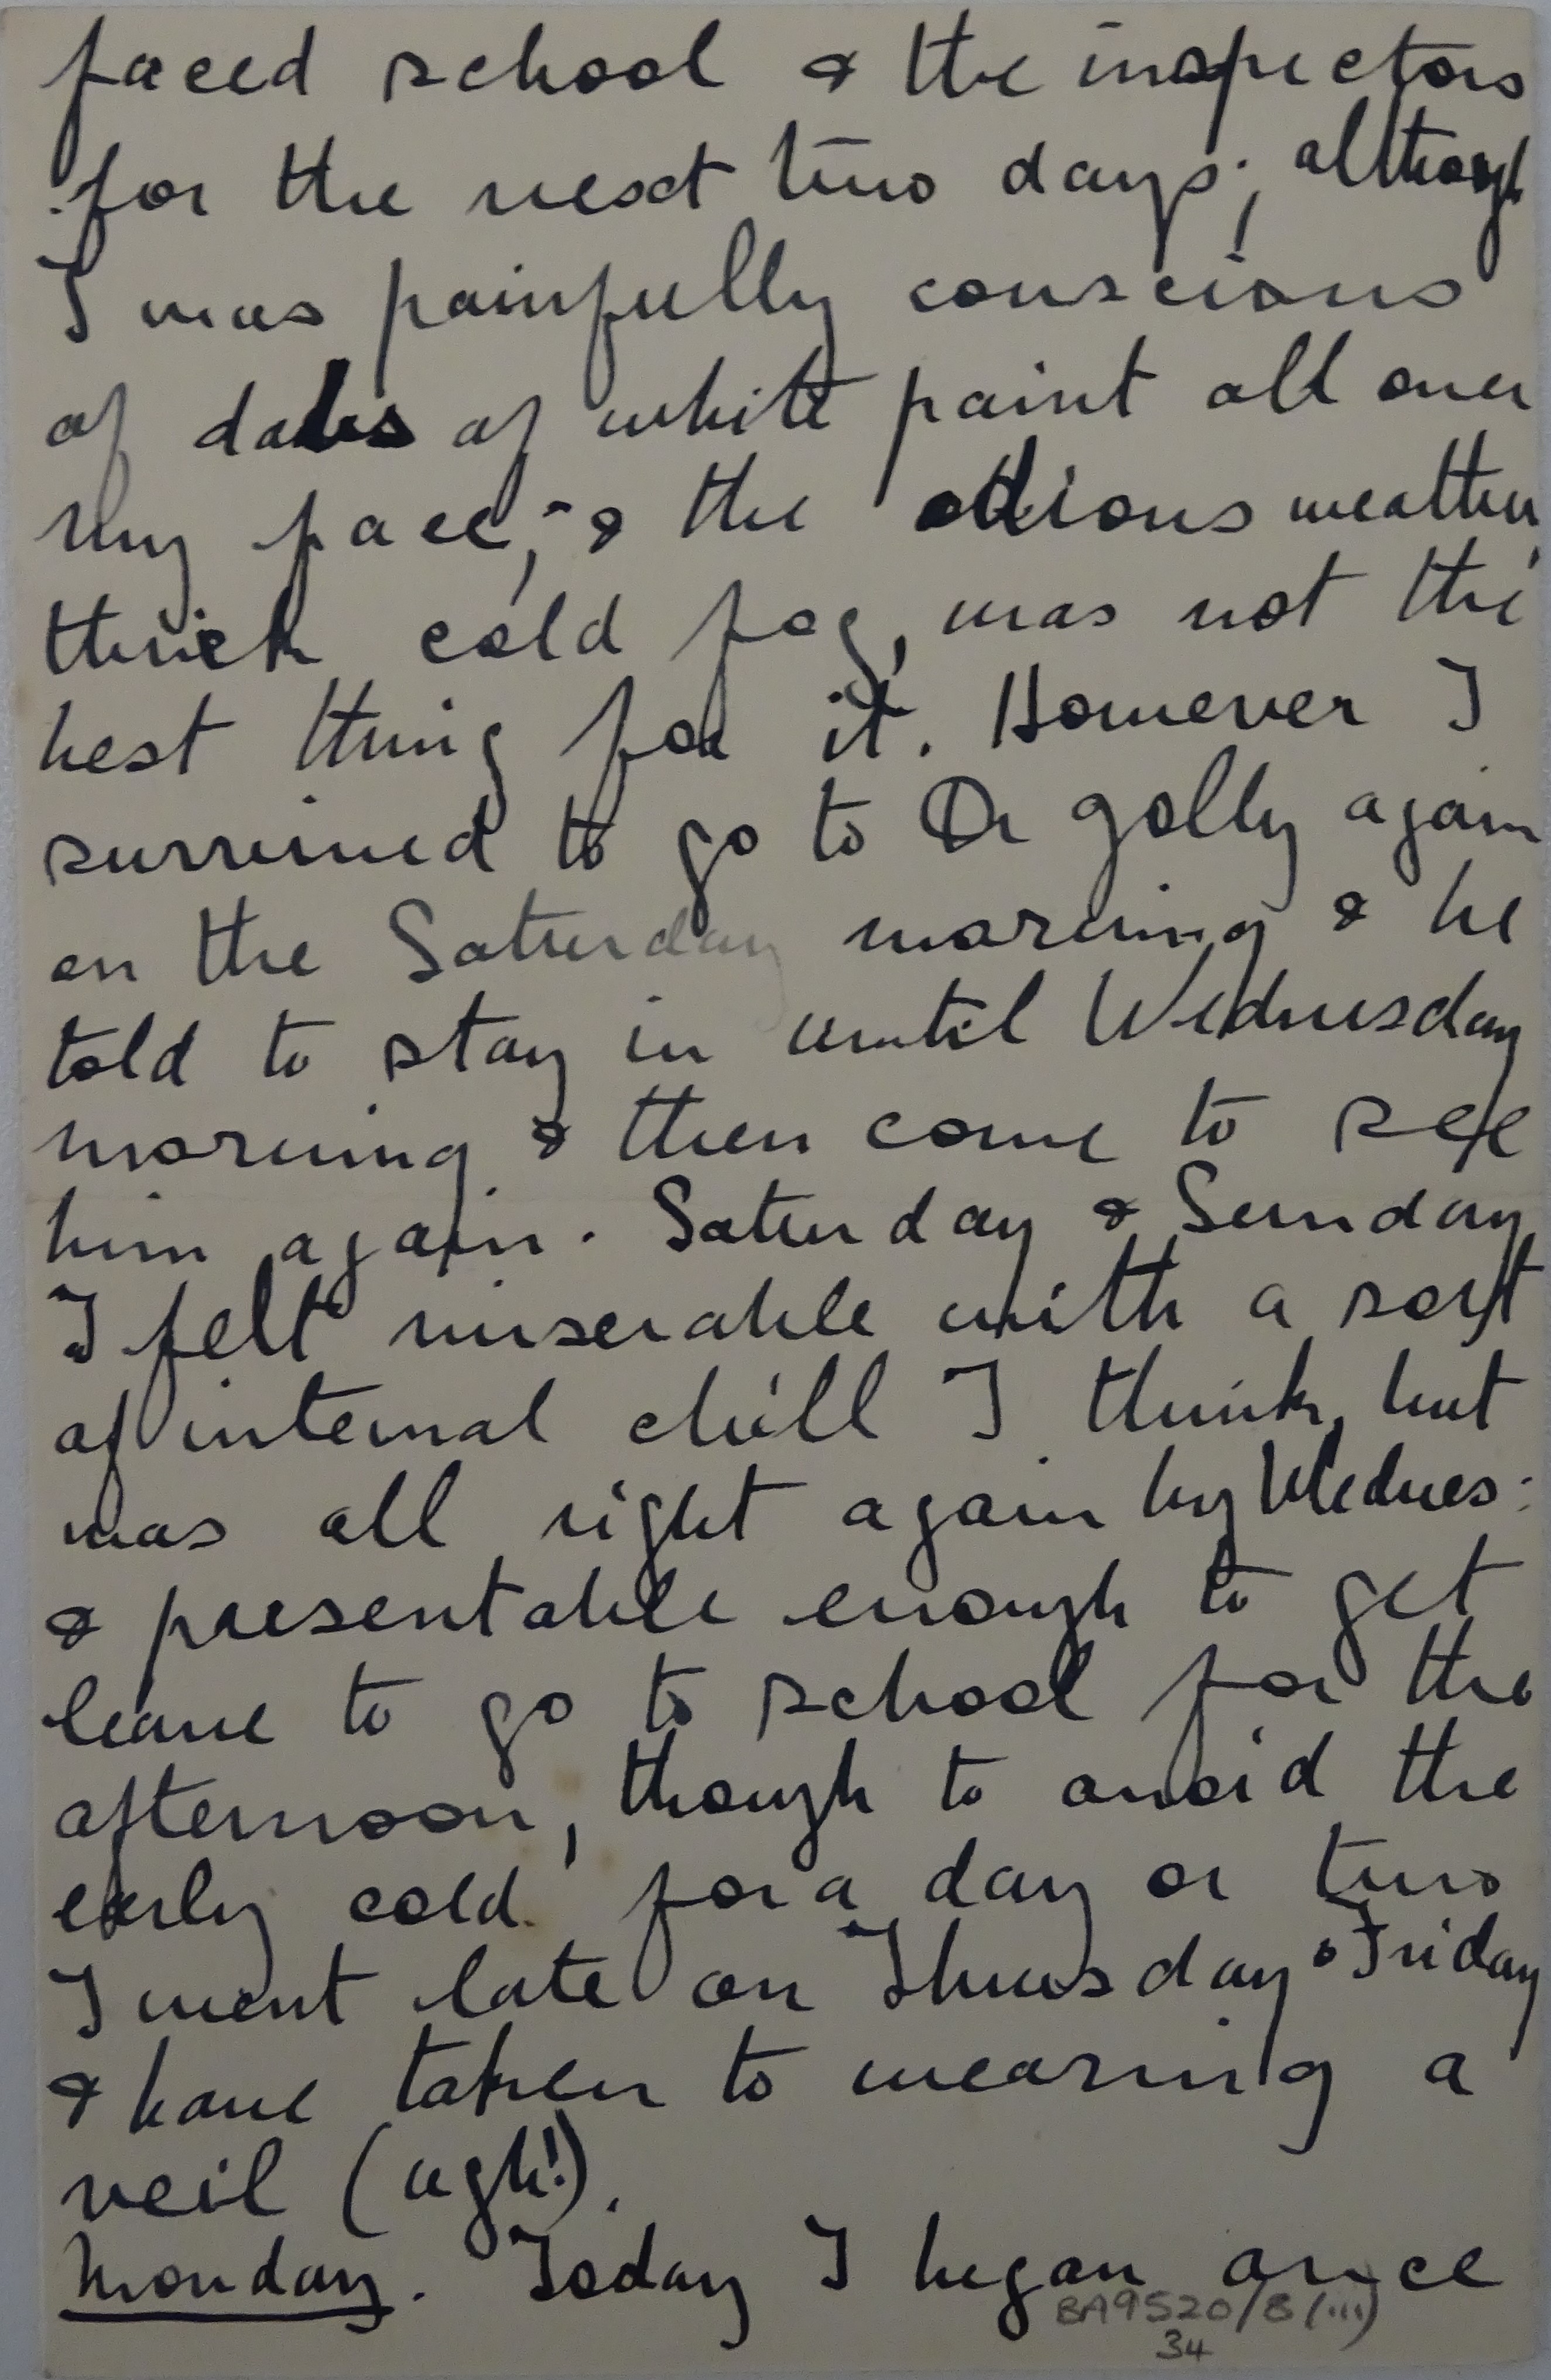 faced school & the inspectors
for the next two days; although
I was painfully conscious
of dabs of white paint all over
my face; & the odious weather,
thick cold fog, was not the
best thing for it. However I
survived to go to Dr Golly again
on the Saturday morning & he
told to stay in until Wednesday
morning & then come to see
him again. Saturday & Sunday
I felt miserable with a sort
of internal chill I think, but
was all right again by Wednes:
& presentable enough to get
leave to go to school for the
afternoon, though to avoid the
early cold for a day or two
I went late on Thursday & Friday
& have taken to wearing a
veil (ugh!).
Monday. Today I began once
BA9520/8(iii)
34